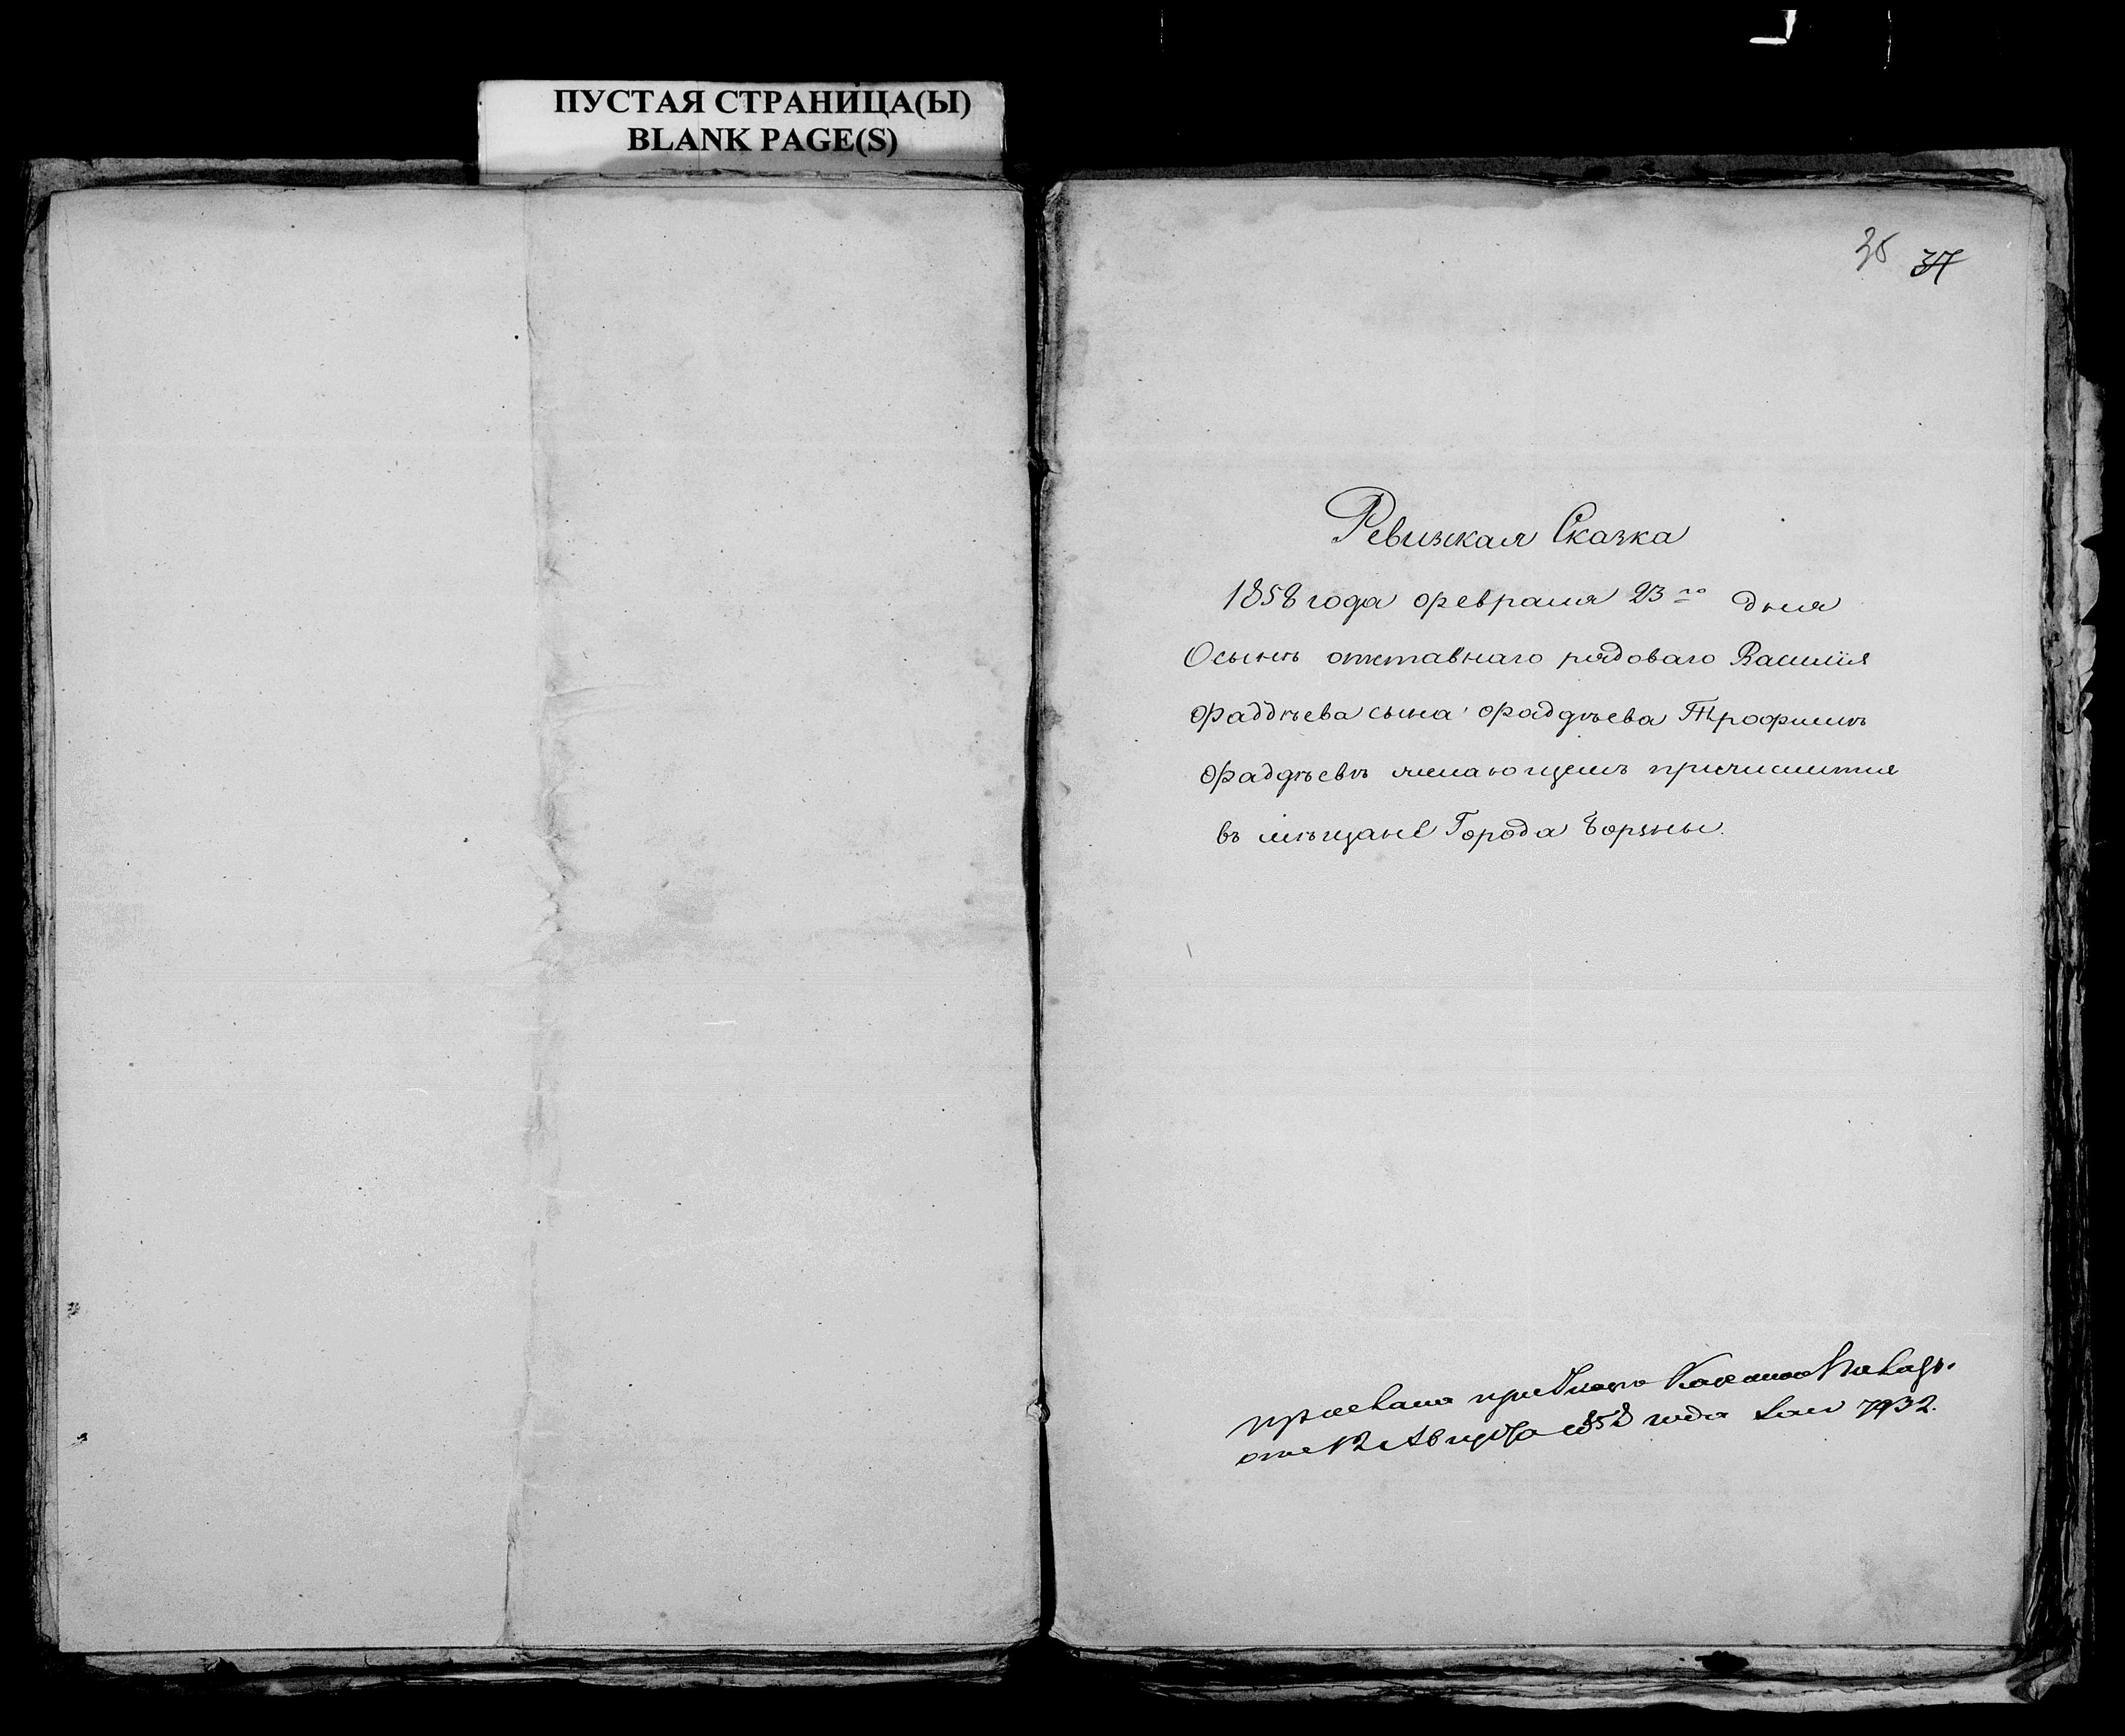 ПУСТАЯ СТРАНИЦА(Ы)
BLANK PAGE(S)
36 37
Ревизкая Сказка
1858 года февраля 23го дня
О сынѣ отставнаго рядоваго Василія
Фаддѣева сына Фаддѣева Трофимѣ
Фаддѣевѣ желающемъ причислится
въ мѣщане Города Борзны.
при Указѣ Казенной Палаты
отъ 12 Августа 1858 года за № 7932.